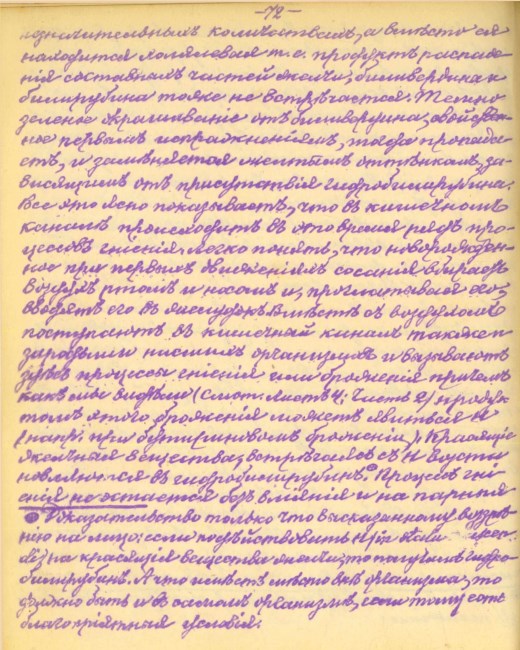 —72—
незначительныхъ количествахъ, а вмѣсто ея
находится холялевая т.е. продуктъ распаде-
нія составныхъ частей желчи, биливердина к
билирубина тоже не встрѣчается. Темно
зеленое окрашиваніе отъ биливердина, свойствен-
ное первымъ испражненіямъ, тогда пропада-
етъ, и замѣняется желтымъ оттѣнкомъ, за-
висящимъ отъ присутствія гидробилирубина.
Все это ясно показываетъ, что въ кишечномъ
каналѣ происходитъ въ это время рядъ про-
цессовъ гніенія. Легко понять, что новорожден-
ное при первыхъ движеніяхъ сосанія вбираетъ
воздухъ ртомъ и носомъ и, проглатывая его,
вводятъ его въ желудокъ. Вмѣстѣ съ воздухомъ
поступаютъ въ кишечный каналъ также и
зародыши низшихъ организмовъ и вызываютъ
здѣсь процессы гніенія или броженія причемъ
какъ мы видѣли (смот. листъ 4: часть 2) продук-
томъ этого броженія можетъ явиться H
(напр. при бутириновомъ броженіи). Красящія
желчныя вещества, встрѣчаясь съ H возстa-
новляются въ гидробилирубинъ. Процессъ гні-
енія не остается безъ вліянія и на париція
Доказательство только что высказанному воззрѣ-
нію на лицо: если подѣйствовать H
на красящія вещества желчи, то получимъ гидро-
билирубинъ. А что имѣетъ мѣсто внѣ организма, то
должно быть и въ самомъ организмѣ, если тому есть
благопріятныя условія.